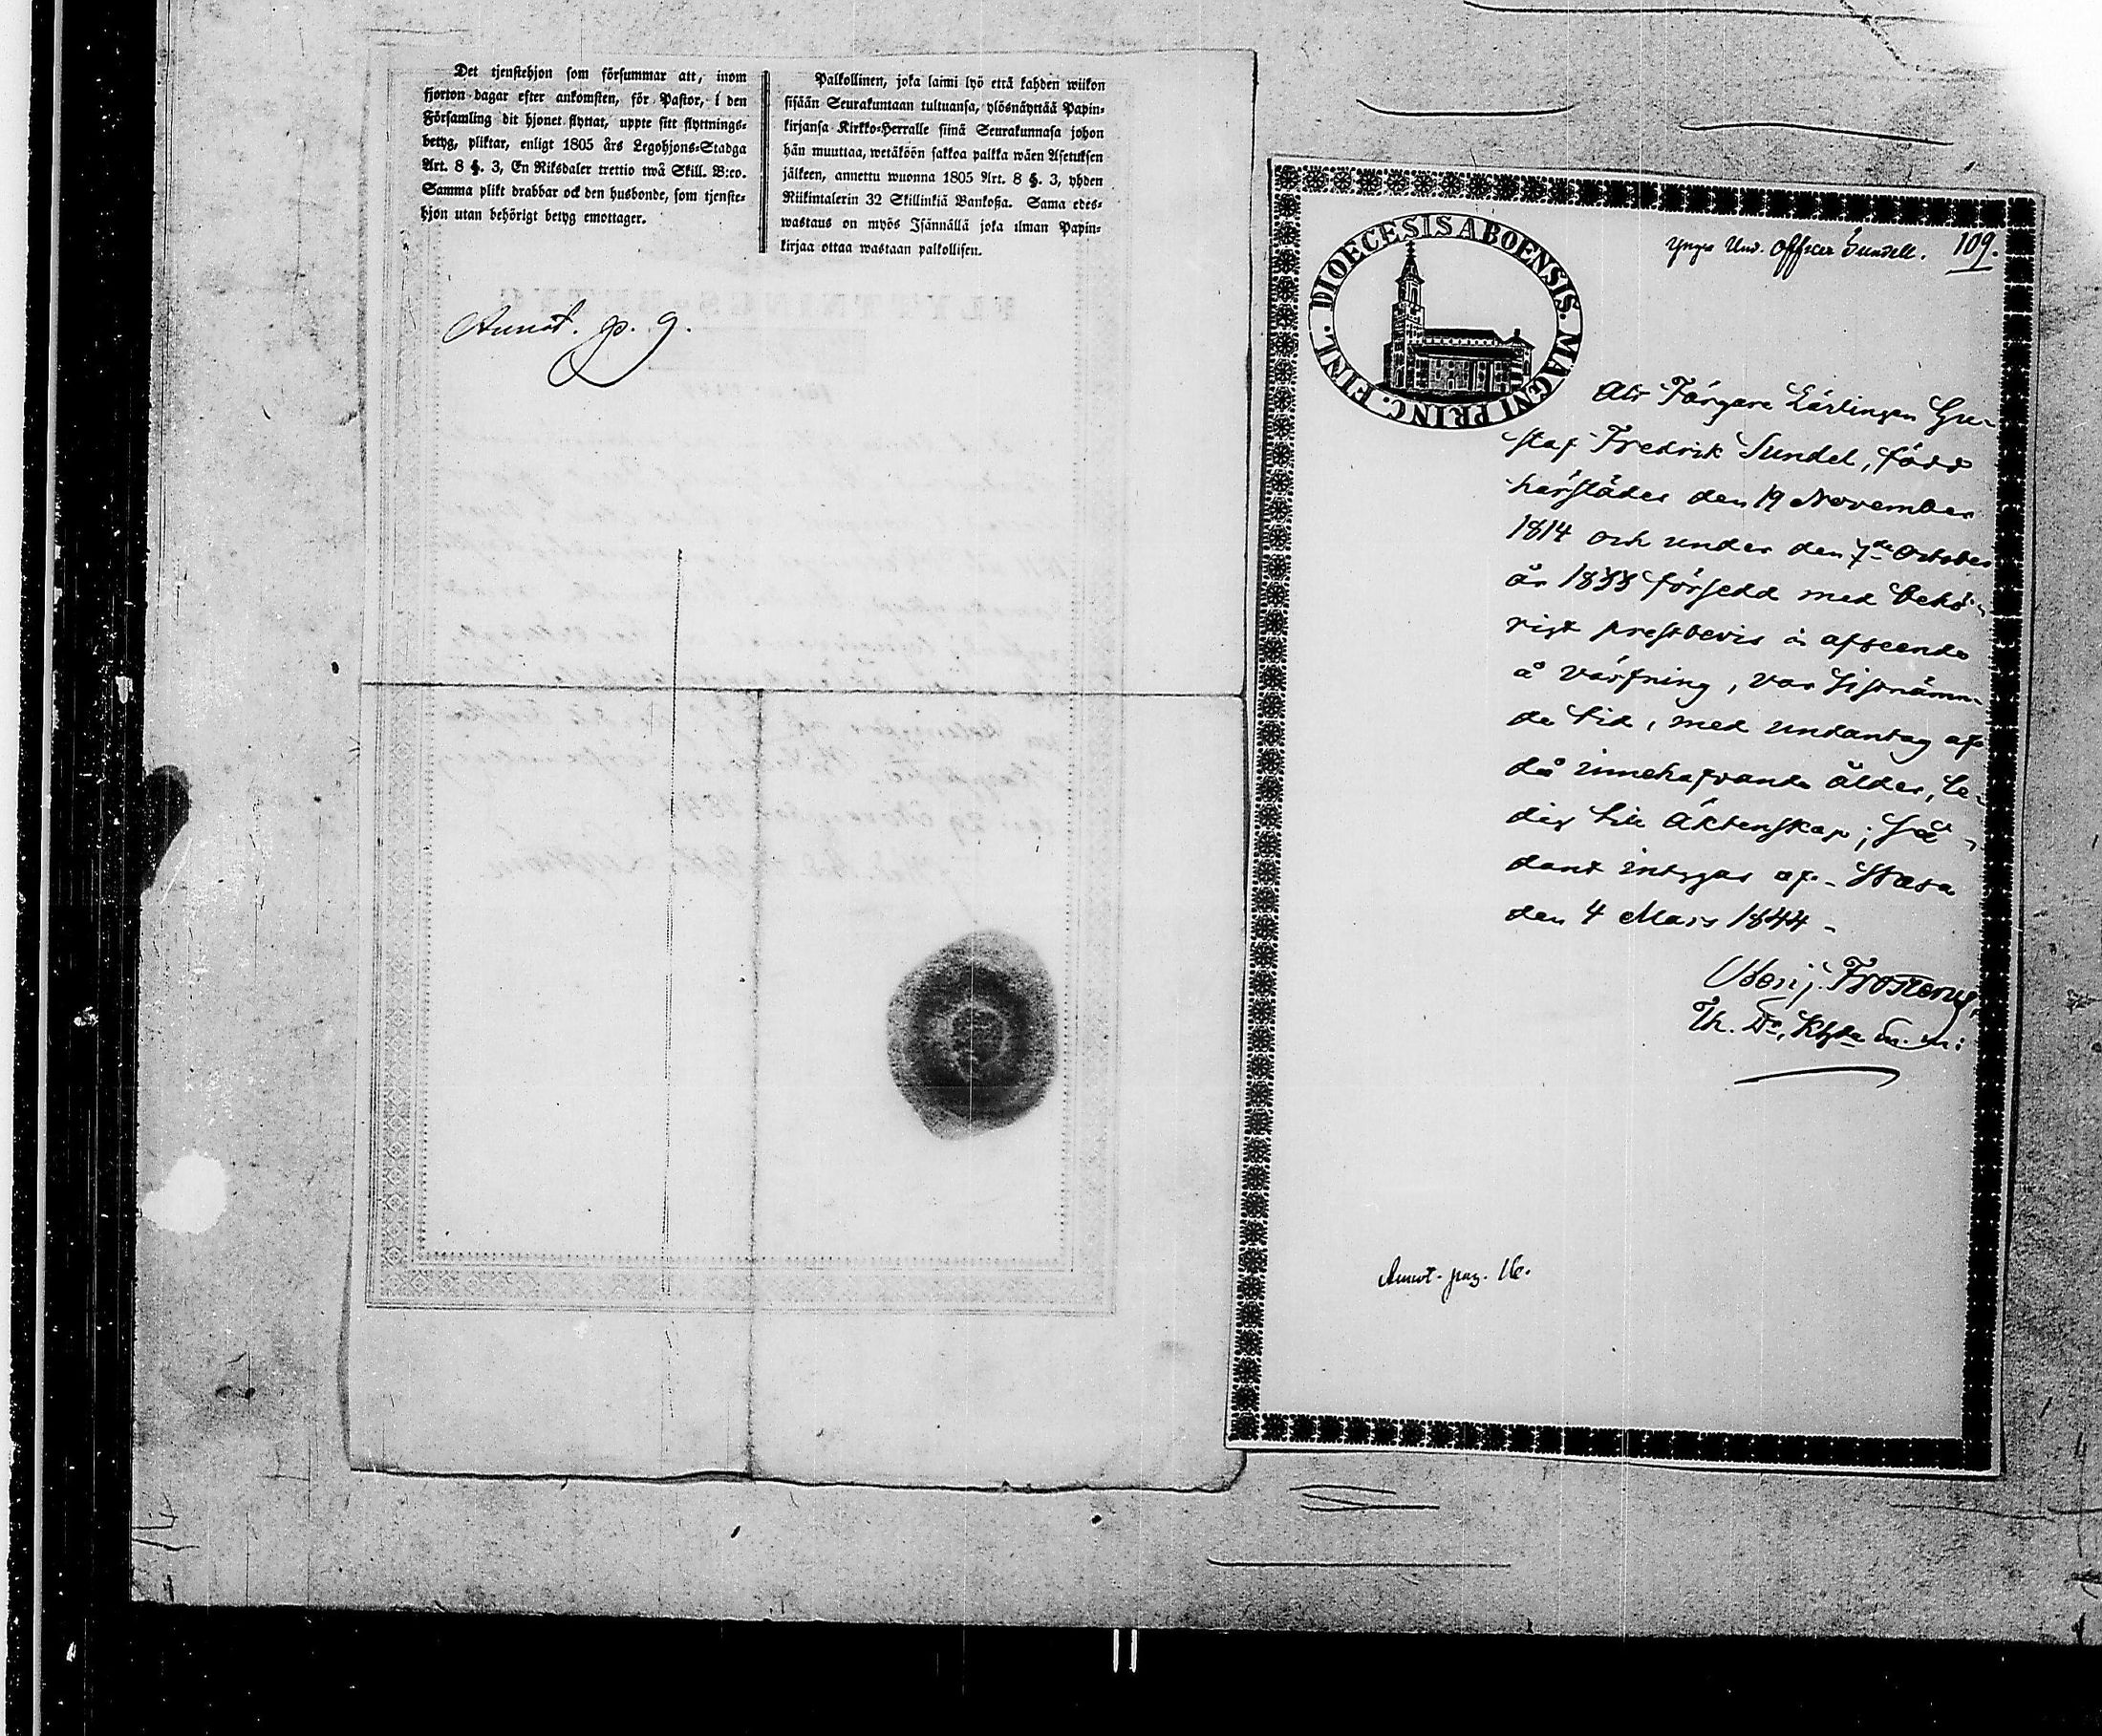 Det tjenstehjon som försummar att, inom
fjorton dagar efter ankomsten, för Pastor, i den
Församling dit hjonet flyttat, uppte sitt flyttnings-
betyg, pliktar, enligt 1805 års Legohjons-Stadga
Art. 8 §. 3, En Riksdaler trettio twå Skill. B:co.
Samma plikt drabbar ock den husbonde, som tjenste-
hjon utan behörigt betyg emottager.
Palkollinen, joka laimi lyö että kahden wiikon
sisään Seurakuntaan tultuansa, ylösnäyttää Papin-
kirjansa Kirkko-Herralle siinä Seurakunnasa johon
hän muuttaa, wetäköön sakkoa palkka wäen Asetuksen
jälkeen, annettu wuonna 1805 Art. 8 §. 3, yhden
Riikintalerin 32 Skillinkiä Bankosa. Sama edes-
wastaus on myös Isännällä joka ilman Papin-
kirjaa ottaa wastaan palkollisen.
Annot. p. 9.
FLYTTNINGS-BETYG
DIOECESIS ABOENSIS. MAGNI PRINC. FINL.
Yngre Und. Officer Sundell. 109.
Att Färgare Lärlingen Gu-
staf Fredrik Sundel, född
härstädes den 19 November
1814 och under den 7de October
år 1833 försedd med behö-
rigt prestbevis i afseende
å värfning, var sistnämn-
de tid, med undantag af
då innehafvande ålder, le-
dig till Äktenskap; så-
dant intygas af. Wasa
den 4 Mars 1844 -
Benj. Frosterus,
Th. Dr, Khde m. m:
Annot. pag. 16.